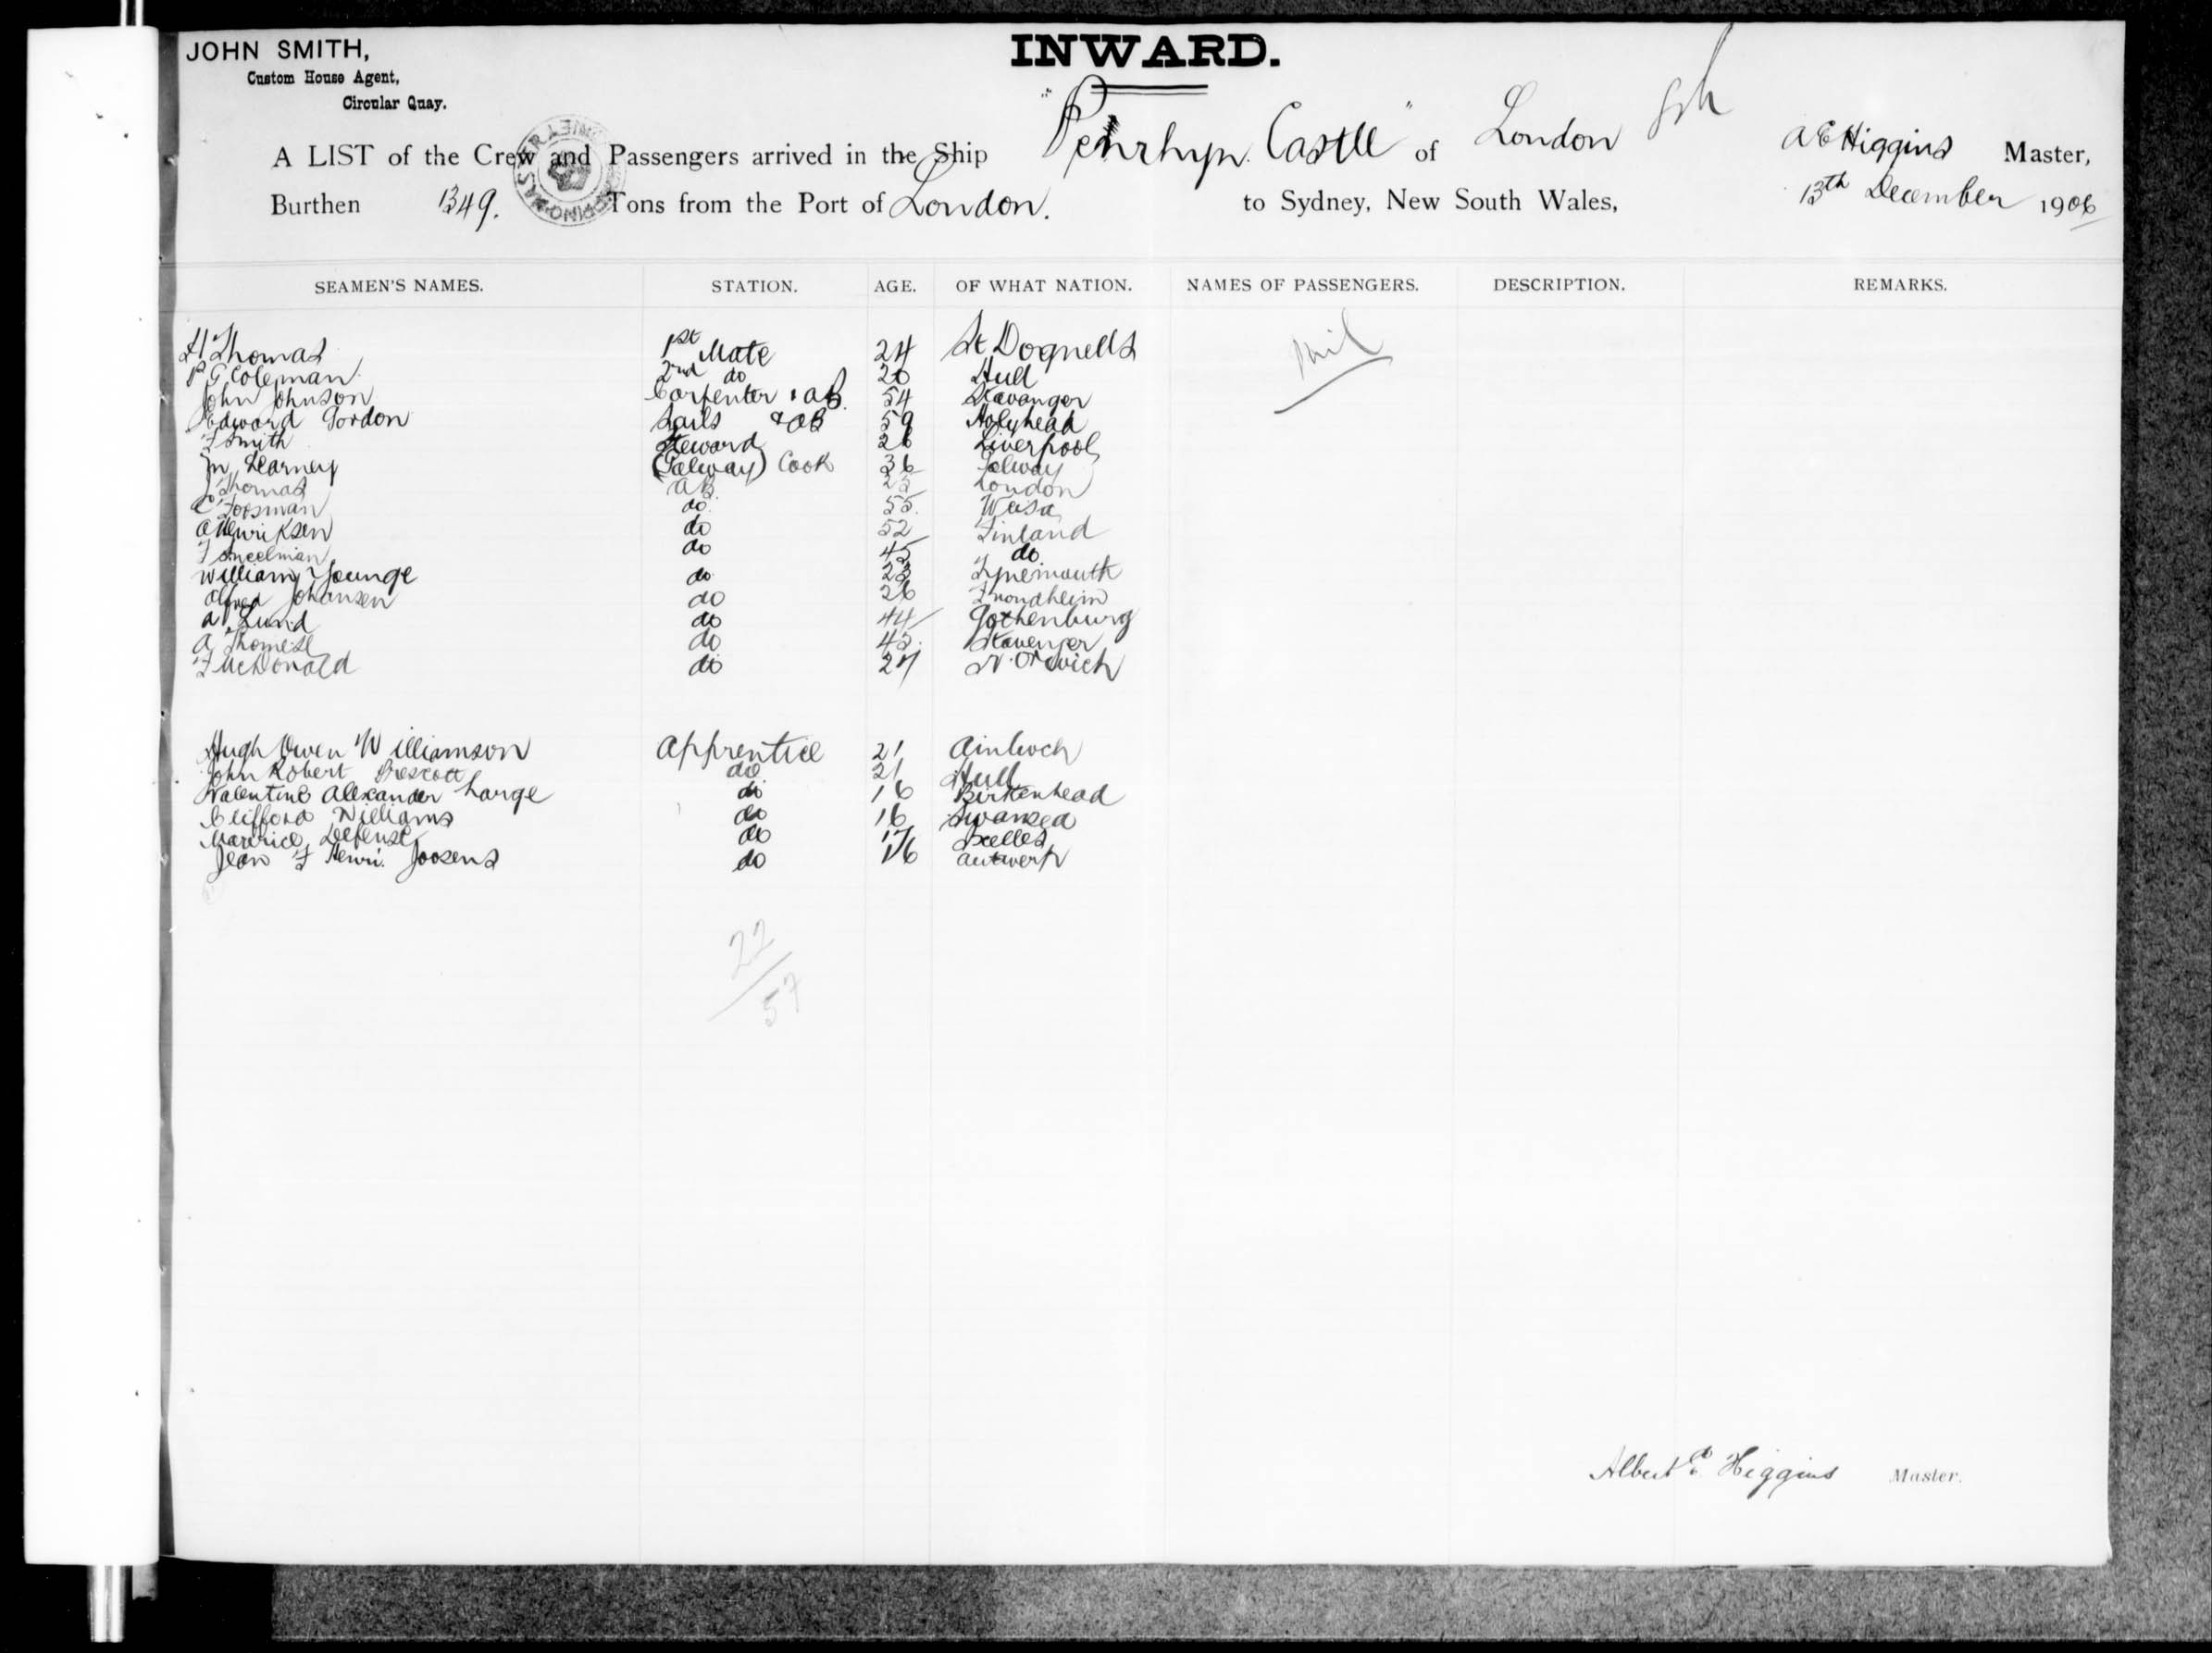 JOHN SMITH,
Custom House Agent,
Circular Quay.
INWARD.
A LIST of the Crew and Passengers arrived in the Ship "Penrhyn Castle" of London A E Higgins Master,
Burthen 1349. Tons from the Port of London. to Sydney, New South Wales, 13th December 1906
SEAMEN'S NAMES. STATION. AGE. OF WHAT NATION. NAMES OF PASSENGERS. DESCRIPTION. REMARKS.
H Thomas 1st Mate 24 St Dognells Nil
P G Coleman 2nd do 20 Hull
John Johnson Carpenter & AB. 54 Stavanger
Edward Gordon Sails & AB 59 Holyhead
F Smith Steward 26 Liverpool
M Kearney (Galway) Cook 36 Galway
J Thomas AB. London
do. 55. Wasa
A Henriksen do 52 Finland
do 45 do
William Younge do 23 Tynemouth
Alfred Johansen do 26 Trondheim
A Lund do 44 Gothenburg
A do 42. Stavenger
F McDonald do 27 Norwich
Hugh Owen Williamson Apprentice 21 Amlwch
John Robert Prescott do 21 Hull
Valentine Alexander Large do 16 Birkenhead
Clifford Williams do 16 Swansea
Maurice Defense do 17 Ixelles
Jean F Henri. Joosens do 16 Antwerp
22
57
Albert E. Higgins Master.